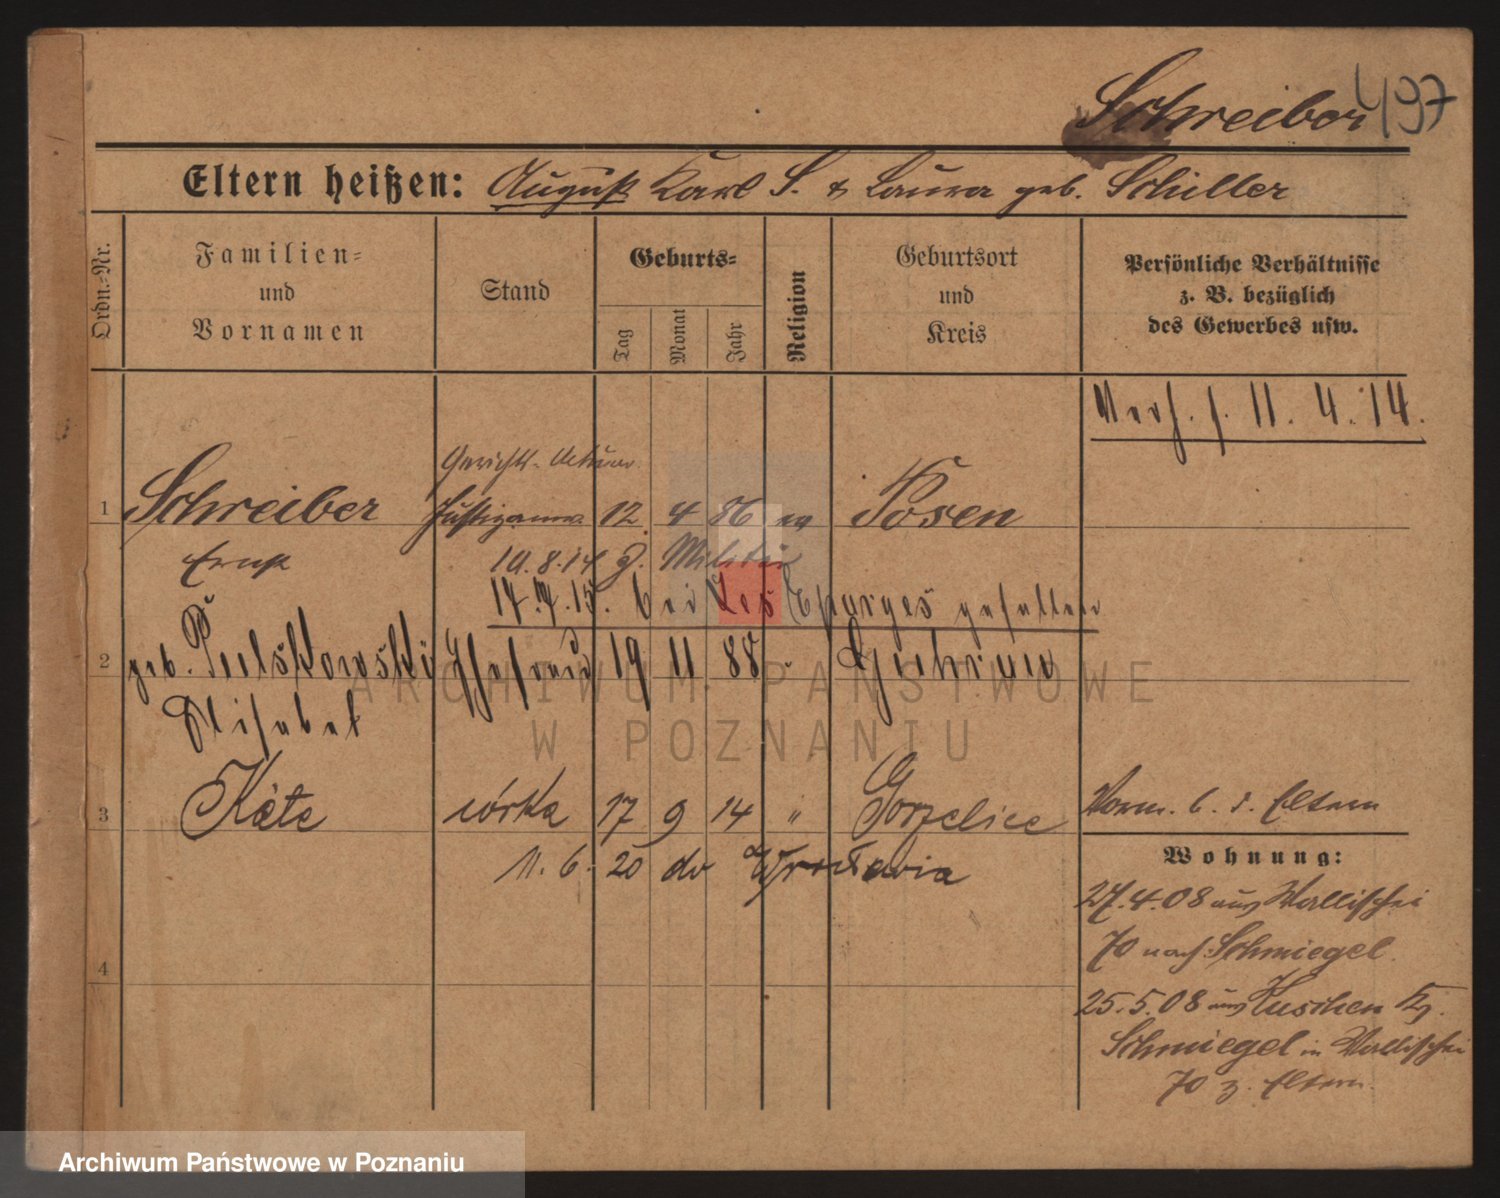 Schreiber 497
Eltern heißen: August Karl S. & Laura geb. Schiller
Ordn.-Nr.
Familien-
und
Vornamen
Stand
Geburts-
Tag
Monat
Jahr
Religion
Geburtsort
und
Kreis
Persönliche Verhältnisse
z. B. bezüglich
des Gewerbes usw.
Verh. s. 11. 4. 14.
Gerichts-Aktuar
1 Schreiber Justizanw. 12 4 86 ev Posen
Ernst 10.8.14 z. Militär
17.4.15. bei Les Eparges gefallen
2 geb. Ehefrau 19 11 88 " Guhrau
Elisabet
3 Käte córka 17 9 14 " Gorzelice Vorm. b. d. Eltern
11. 6. 20 do Wrocławia
Wohnung:
27.4.08 aus Wallischei
70 nach Schmiegel.
25.5.08 aus Kuschen Kr.
Schmiegel in Wallischei
70 z. Eltern.
4
ARCHIWUM PAŃSTWOWE
W POZNANIU
Archiwum Państwowe w Poznaniu